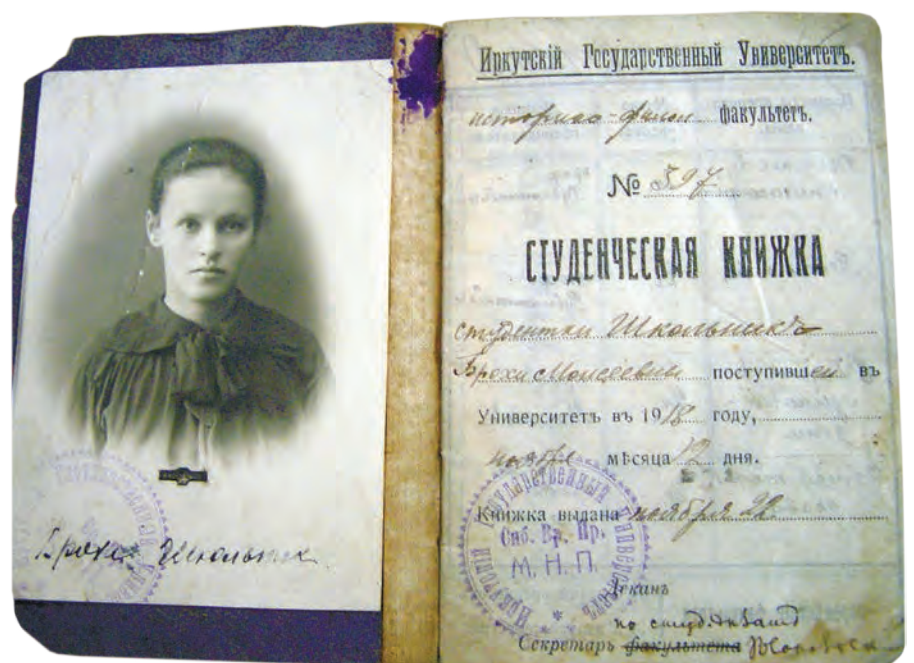 Броха Школьник
Иркутскій Государственный Университетъ.
историко-филол факультетъ.
№ 597
СТУДЕНЧЕСКАЯ КНИЖКА
студентки Школьникъ
Брохи Моисеевны поступившей въ
Университетъ въ 1918 году,
ноября мѣсяца 12 дня.
Книжка выдана ноября 22
Иркутскій Государственный Университетъ
Сиб. Вр. Пр.
М. Н. П.
Деканъ
по студ.
Секретарь факультета